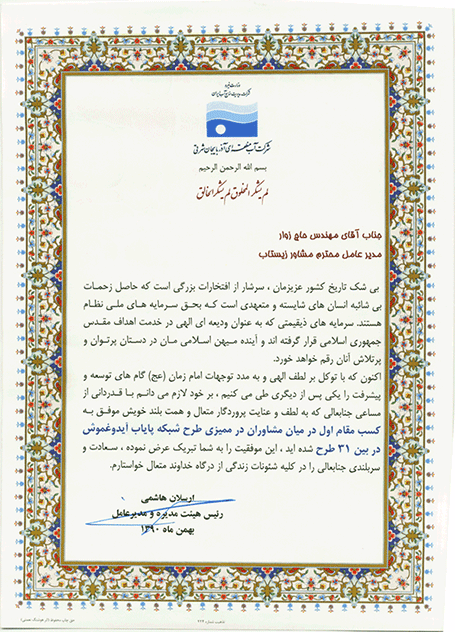 وزارت نیرو
شرکت آب منطقه ای آذربایجان شرقی
بسم الله الرحمن الرحیم
لم یشکر المخلوق لم یشکر الخالق
جناب آقای مهندس حاج زوار
مدیر عامل محترم مشاور زیستاب
بی شک تاریخ کشور عزیزمان ، سرشار از افتخارات بزرگی است که حاصل زحمات
بی شائبه انسان های شایسته و متعهدی است کـه بحـق سـرمایه هـای ملـی نظـام
هستند. سرمایه های ذیقیمتی که به عنوان ودیعه ای الهی در خدمت اهداف مقدس
جمهوری اسلامی قرار گرفته اند و آینده میـهن اسـلامی مـان در دسـتان پرتـوان و
پرتلاش آنان رقم خواهد خورد.
اکنون که با توکل بر لطف الهی و به مدد توجهات امام زمان (عج) گام های توسعه و
پیشرفت را یکی پس از دیگری طی می کنیم ، بر خود لازم می دانـم بـا قـدردانی از
مساعی جنابعالی که به لطف و عنایت پروردگار متعال و همت بلند خویش موفق بـه
کسب مقام اول در میان مشاوران در ممیزی طرح شبکه پایاب آیدوغموش
در بین ۳۱ طرح شده اید ، این موفقیت را به شما تبریک عرض نموده ، سـعادت و
سربلندی جنابعالی را در کلیه شئونات زندگی از درگاه خداوند متعال خواستارم.
ارسلان هاشمی
رئیس هیئت مدیره و مدیرعامل
بهمن ماه ۱۳۹۰